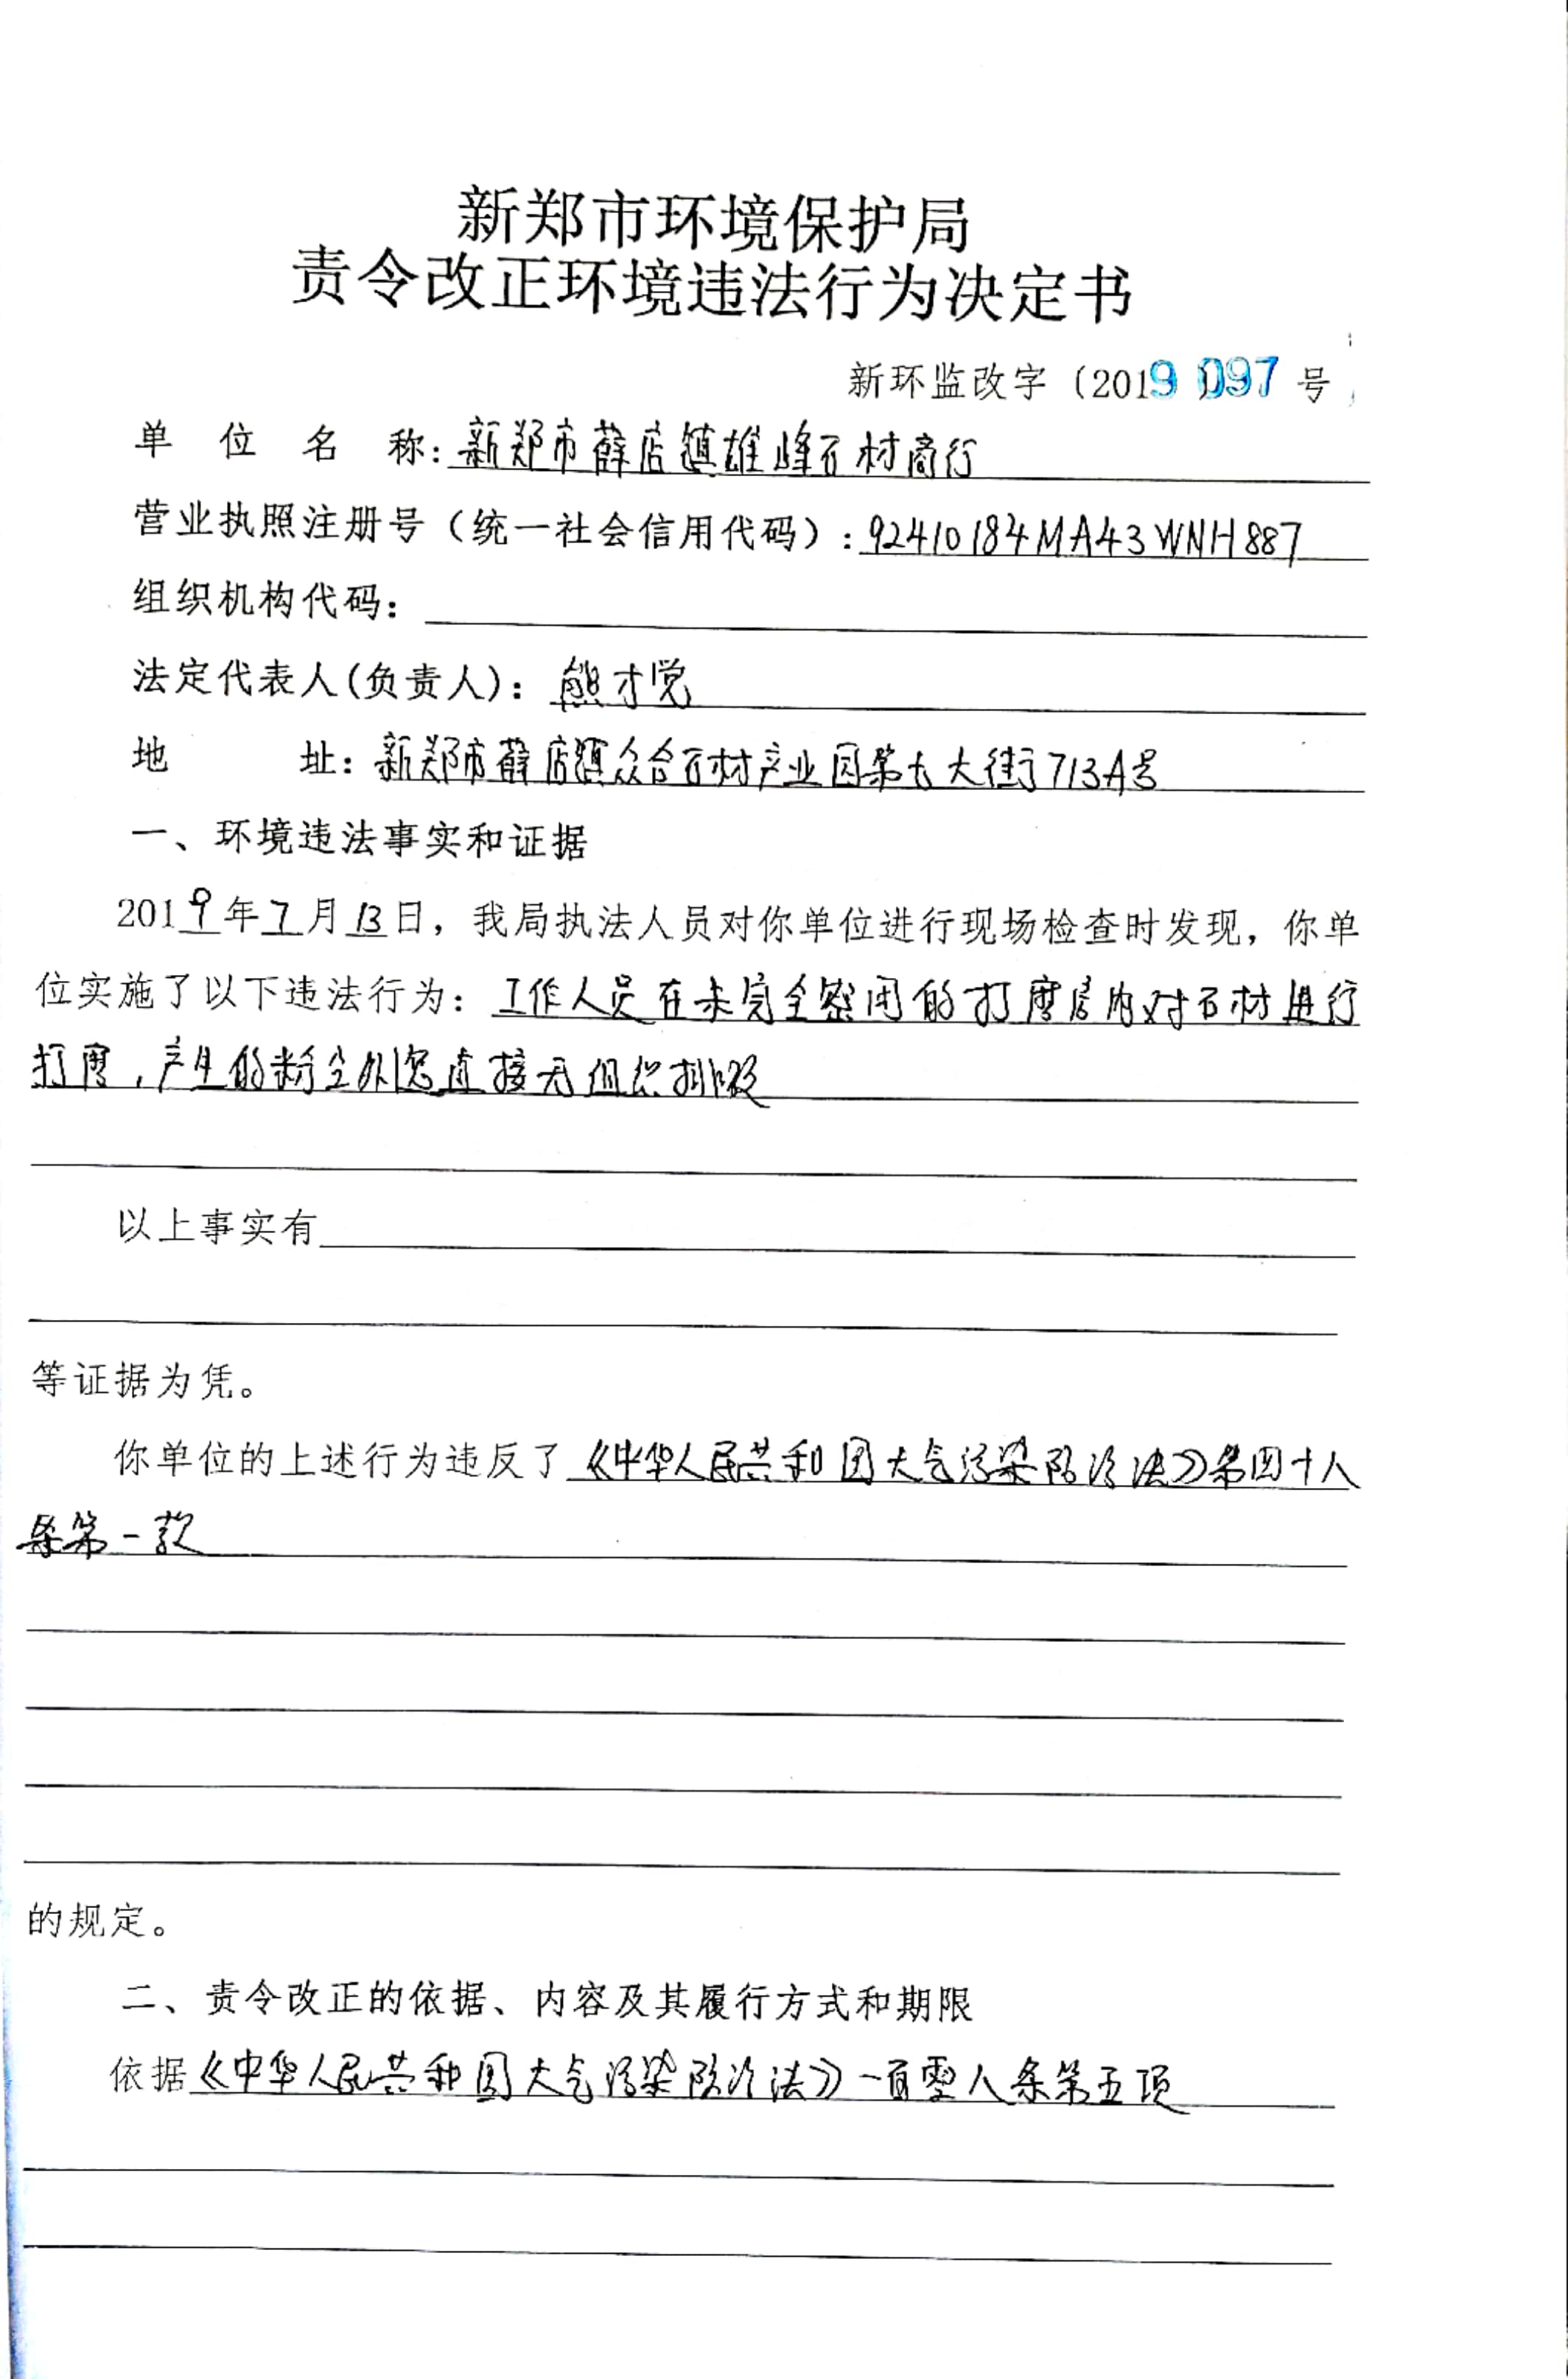 新郑市环境保护局
责令改正环境违法行为决定书
新环监改字（2019）097号
单位名称：新郑市薛店镇雄峰石材商行
营业执照注册号（统一社会信用代码）：92410184MA43WNH887
组织机构代码：
法定代表人(负责人)：熊才党
地址：新郑市薛店镇众合石材产业园第七大街713A号
一、环境违法事实和证据
2019年7月13日，我局执法人员对你单位进行现场检查时发现，你单
位实施了以下违法行为：工作人员在未完全密闭的打磨房内对石材进行
打磨，产生的粉尘外溢直接无组织排放
以上事实有
等证据为凭。
你单位的上述行为违反了《中华人民共和国大气污染防治法》第四十八
条第一款
的规定。
二、责令改正的依据、内容及其履行方式和期限
依据《中华人民共和国大气污染防治法》一百零八条第五项